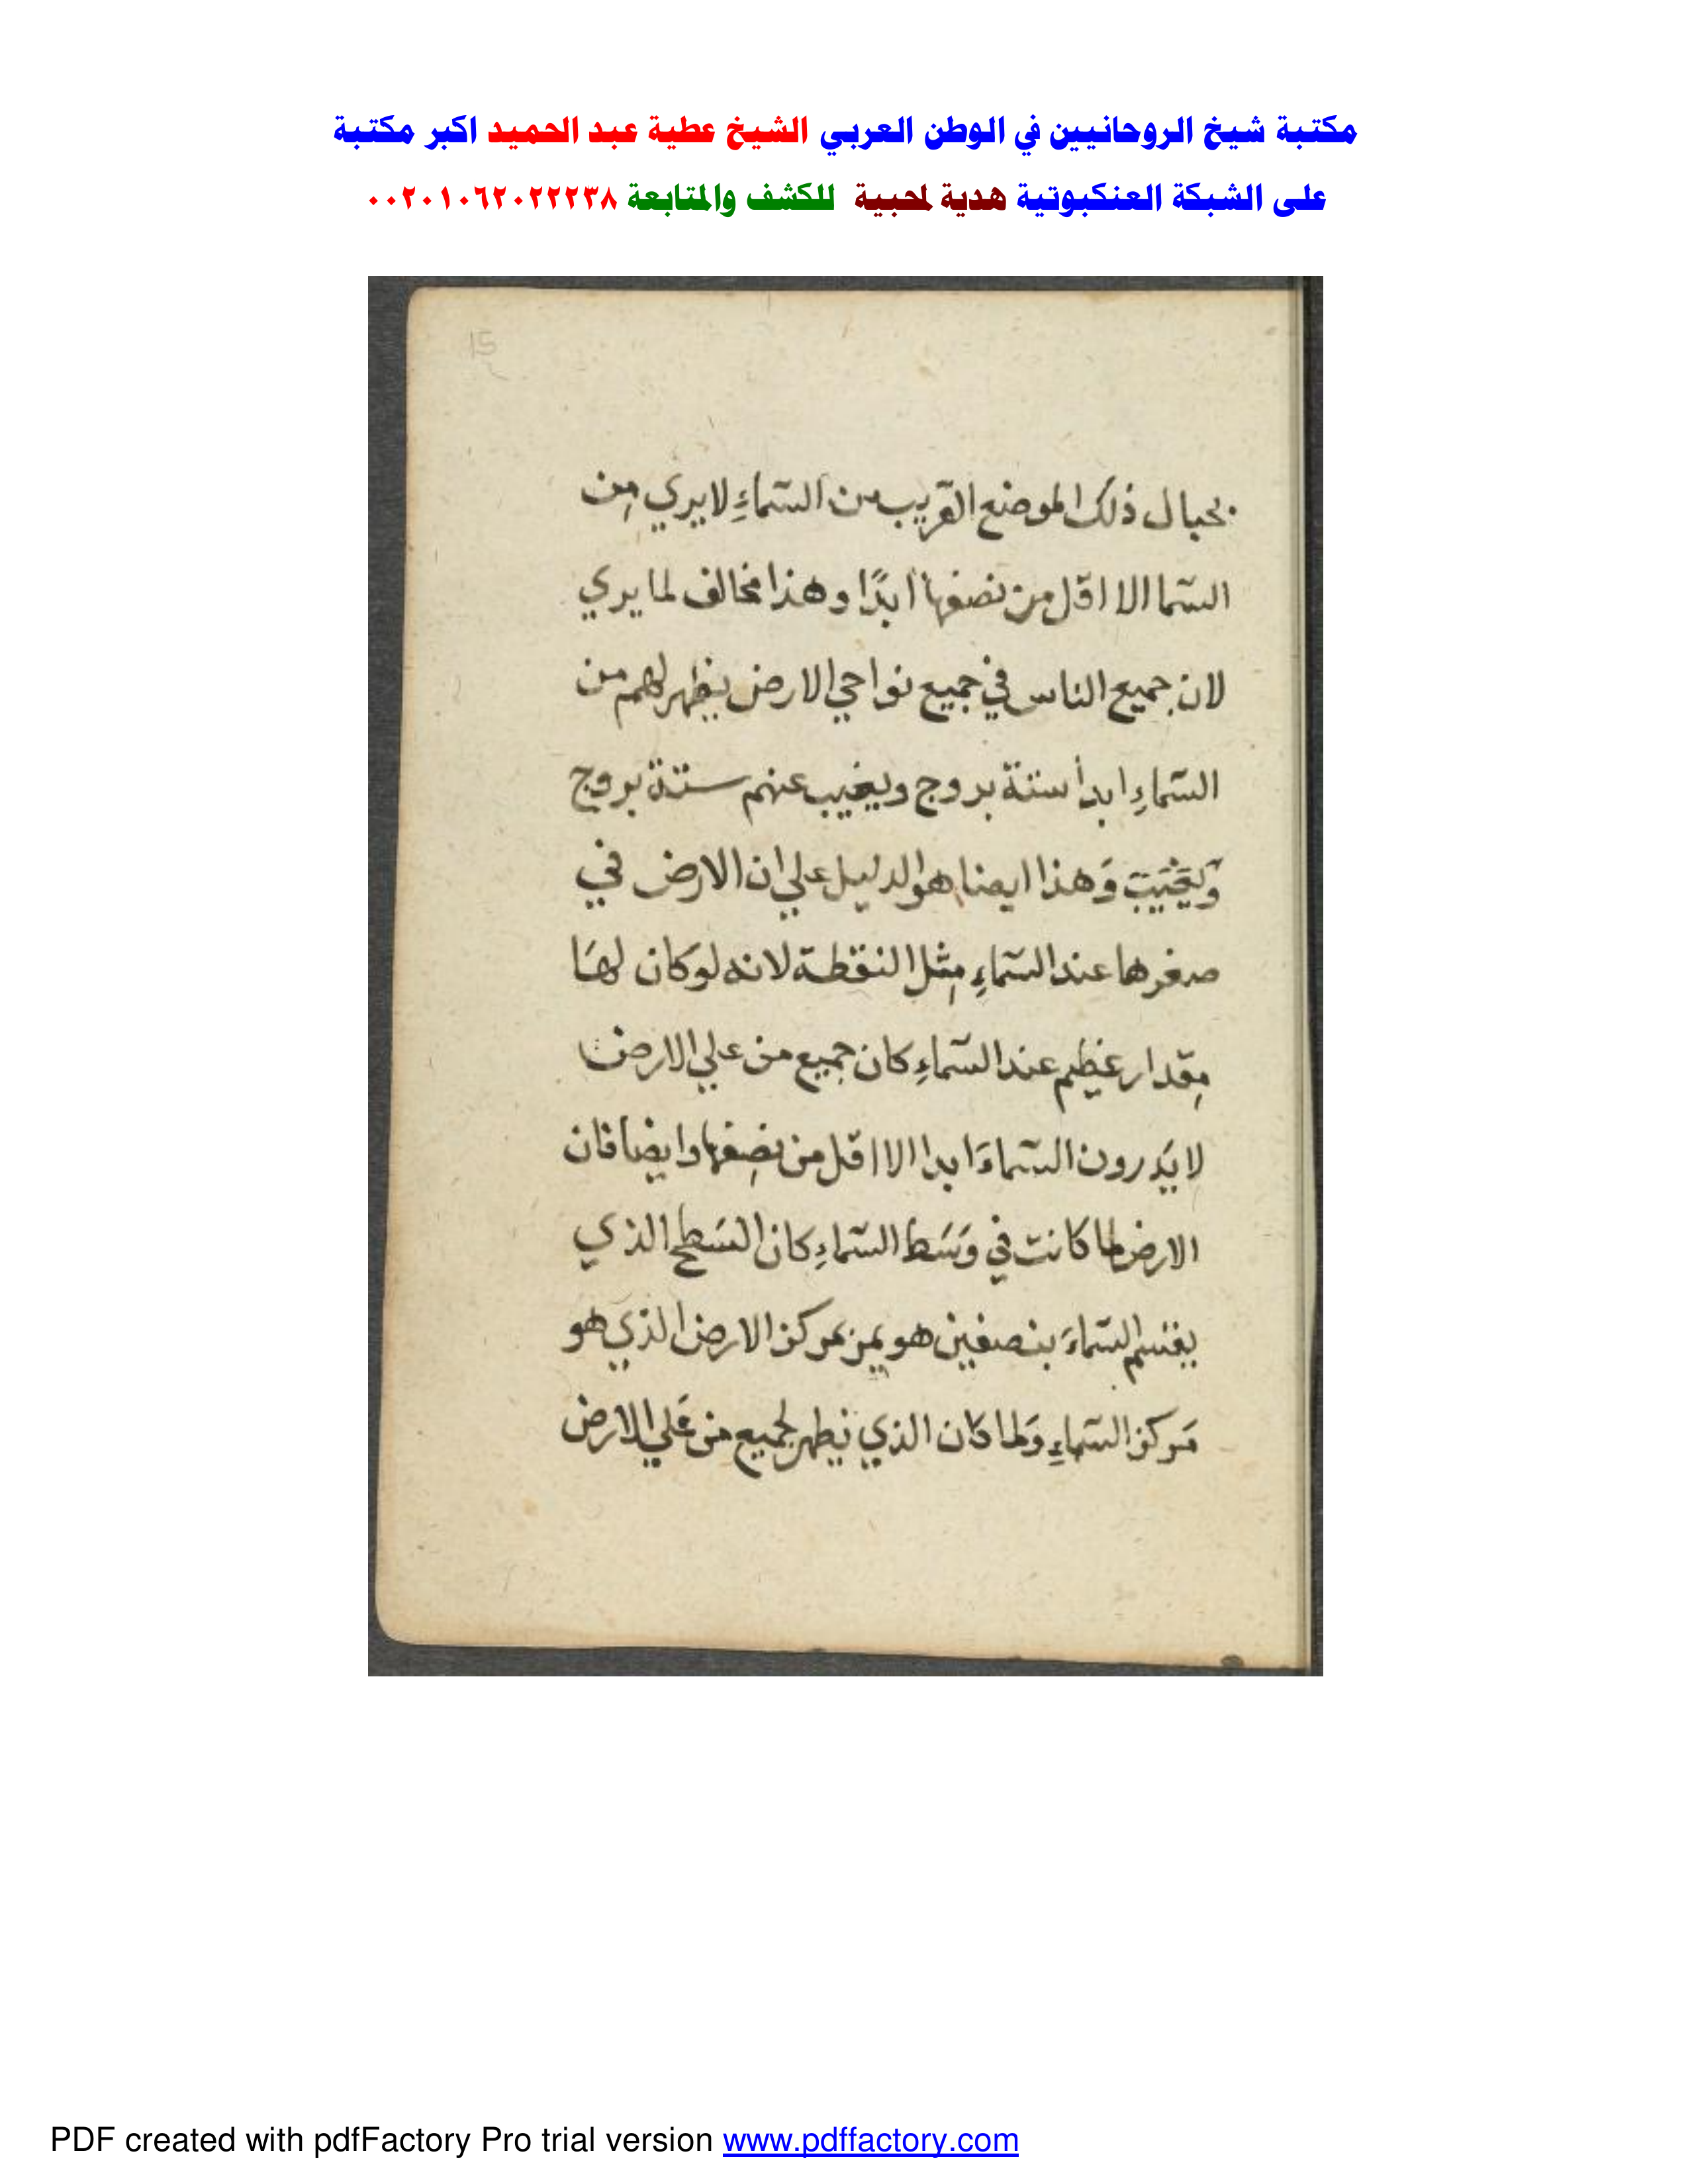 مكتبة شيخ الروحانيين في الوطن العربي الشيخ عطية عبد الحميد اكبر مكتبة
على الشبكة العنكبوتية هدية لمحبية للكشف والمتابعة ٠٠٢٠١٠٦٢٠٢٢٢٣٨
15
بحيال ذلك الموضع القريب من السّماءِ لا يري مِن
السّما الا اقل من نصفها ابدًا وهذا مخالف لما يري
لان جميع الناس في جميع نواحي الارض يظهر لهم من
السّماءِ ابداً ستة بروج ويغيب عنهم ستة بروج
وَهذا ايضا هو الدليل علي ان الارض في
صغرها عند السّماءِ مِثل النقطة لانه لو كان لهَا
مِقدار عَظِيم عند السّماءِ كان جميع من علي الارض
لا يَرون السّماءَ ابدا الا اقل من نِصِفها وايضا فان
الارض لما كانت في وَسَط السّماءِ كان السَطح الذي
يقسم السّماءَ بنصفين هو يمر بمركز الارض الذي هو
مَركز السّماءِ وَلما كان الذي يظهر لجميع من عَلي الارض
PDF created with pdfFactory Pro trial version www.pdffactory.com